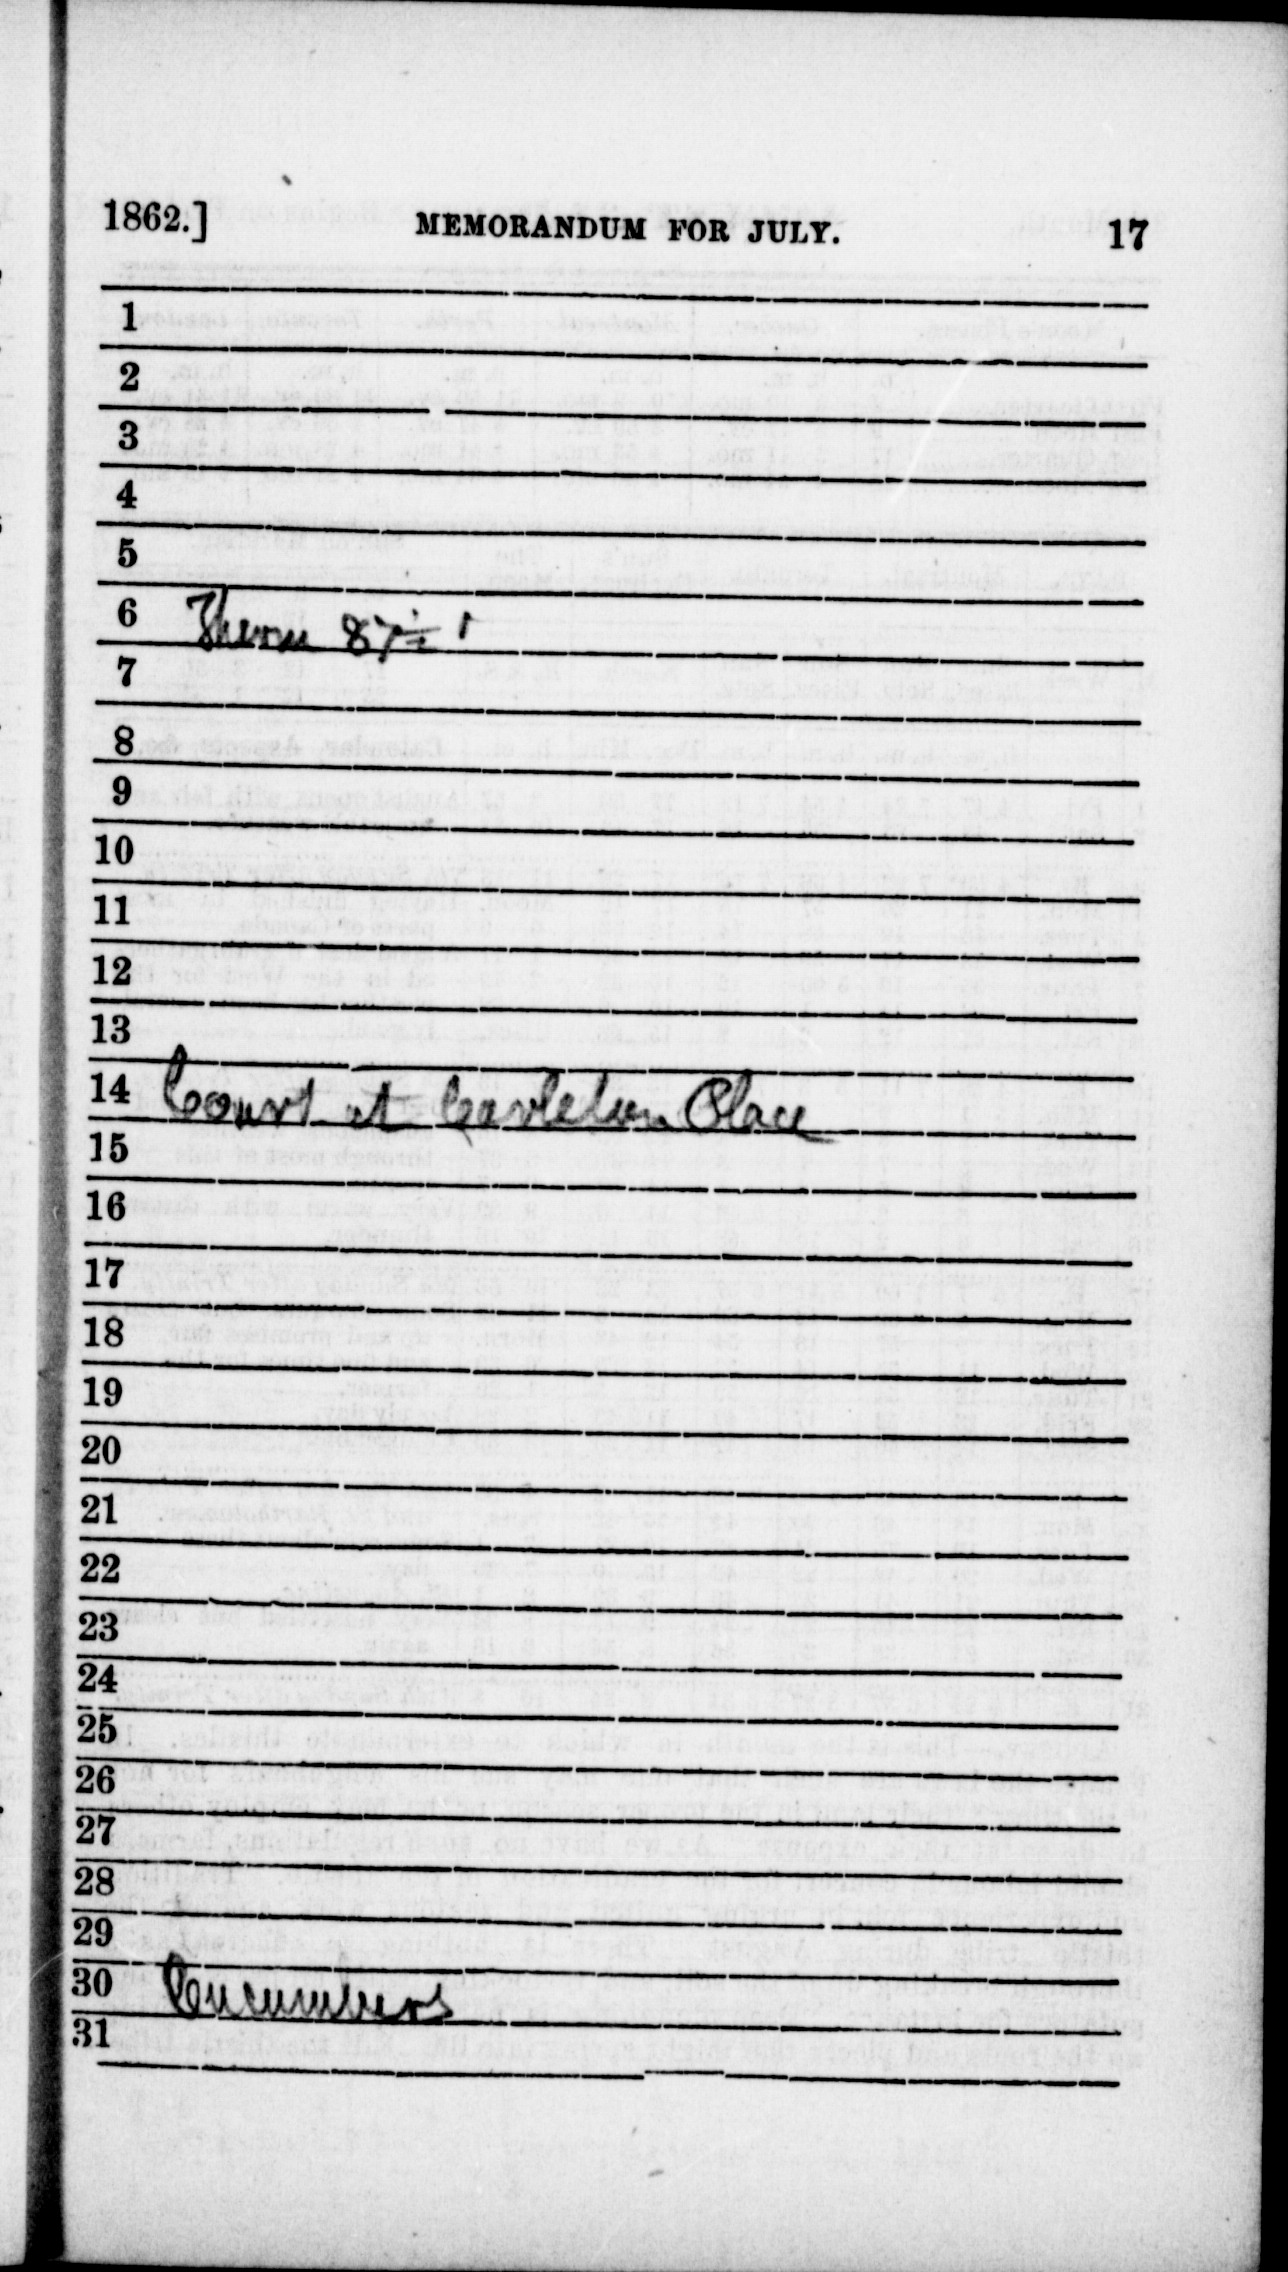 1862.] MEMORANDUM FOR JULY. 17
1
2
3
4
5
6 Therm 87½ '
7
8
9
10
11
12
13
14 Court at Carleton Place
15
16
17
18
19
20
21
22
23
24
25
26
27
28
29
30 Cucumbers
31